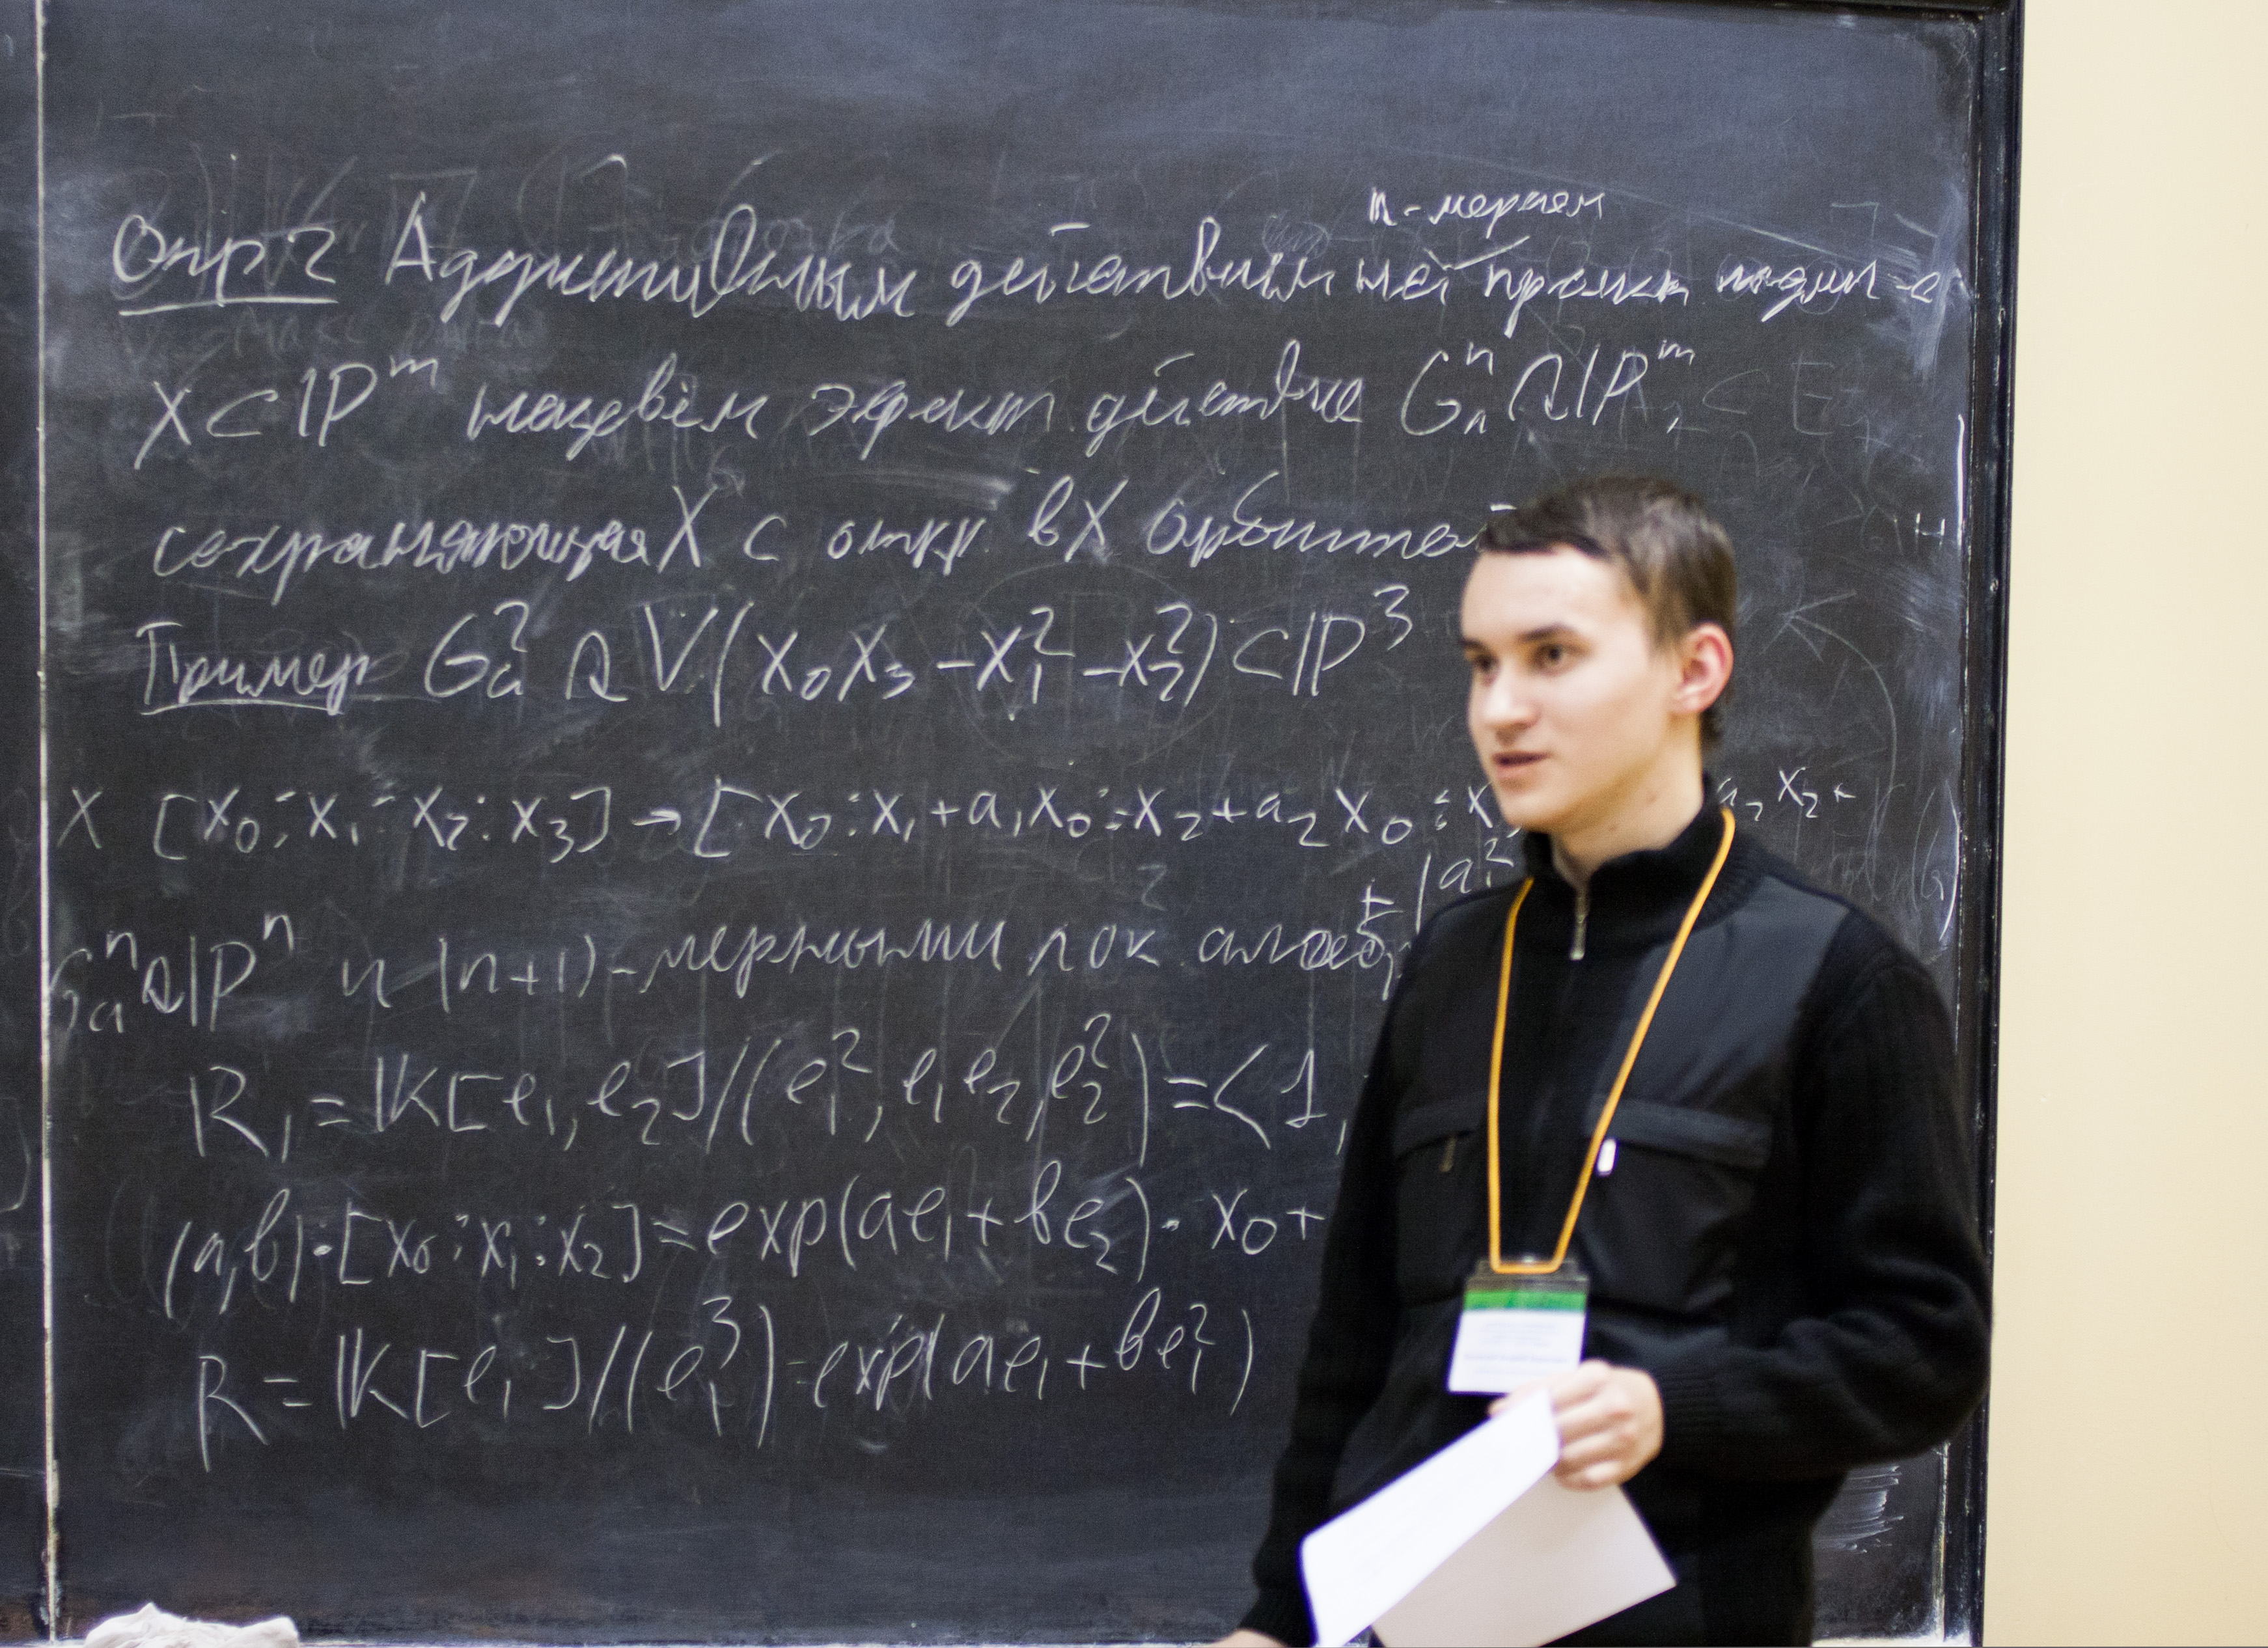 n-мерном
Опр 2 Аддитивным действием на проект подмн-е
X ⊂ ℙ^m назовём эффект действие G_a^n ↷ ℙ^m,
сохраняющее X с откр в X орбитой
Пример G_a^2 ↷ V(x_0x_3 - x_1^2 - x_2^2) ⊂ ℙ^3
X [x_0 : x_1 : x_2 : x_3] → [x_0 : x_1 + a_1x_0 : x_2 + a_2x_0 : x x_2 +
+ (a_1^2
G_a^n ↷ ℙ^n и (n+1)-мерными лок алгеб
R_1 = 𝕂[e_1, e_2]/(e_1^2, e_1e_2, e_2^2) = <1,
(a,b)·[x_0 : x_1 : x_2] = exp(ae_1 + be_2)· x_0 +
R = 𝕂[e_1]/(e_1^3) - exp(ae_1 + be_1^2)